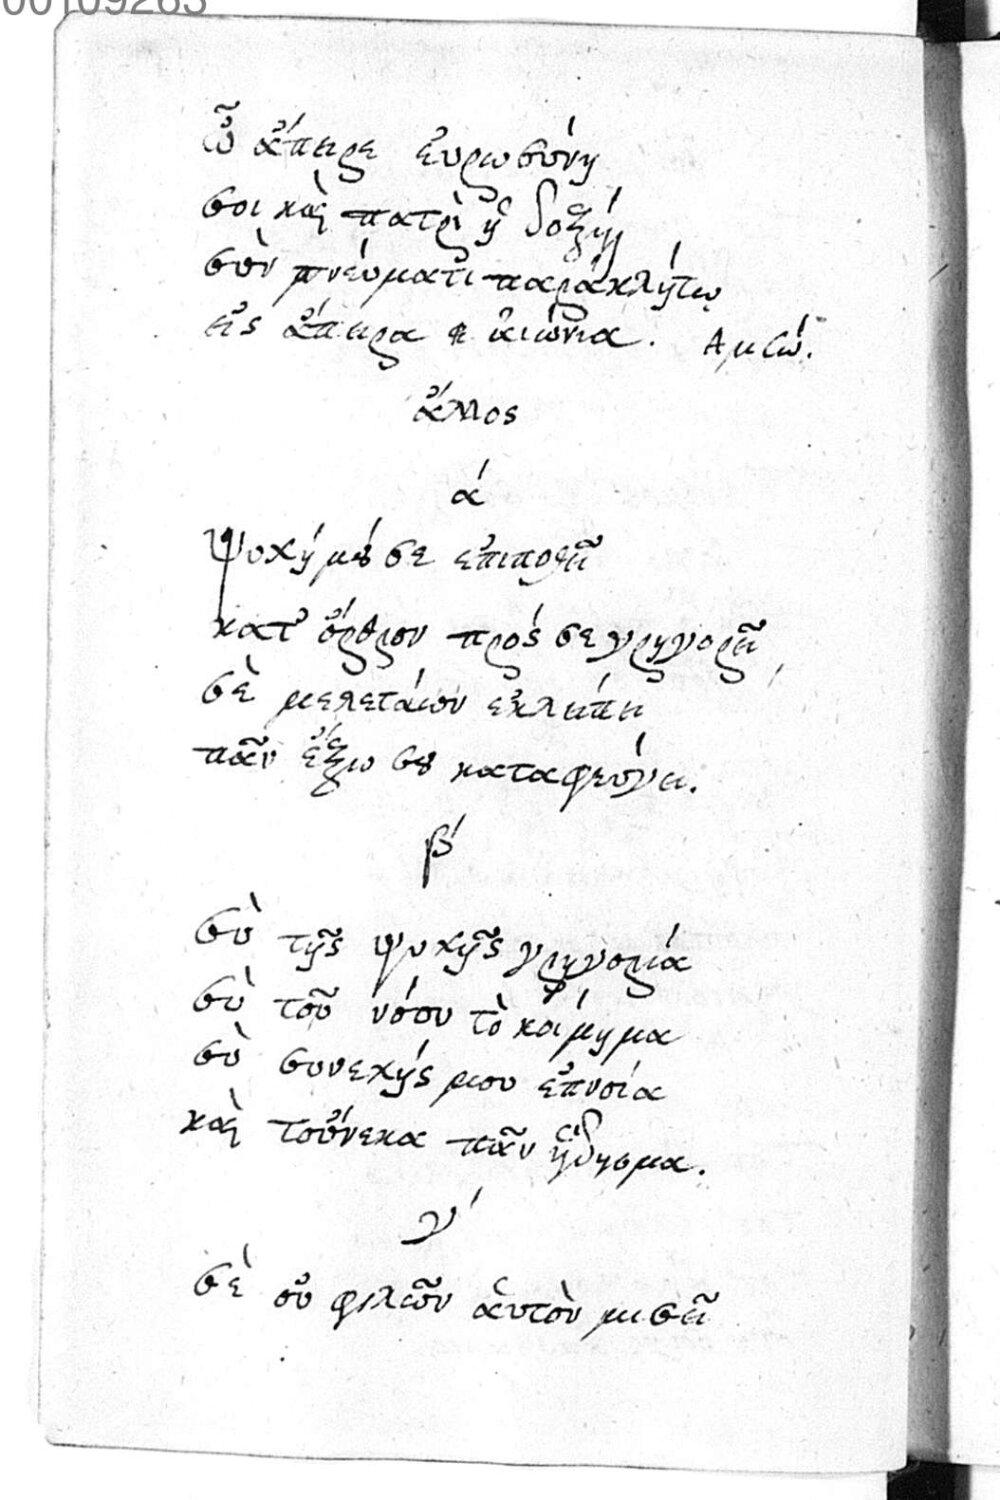 00109263
ὦ ἄπειρε εὐρωσύνη
σοι καὶ πατρὶ ἡ δόξη
σὺν πνεύματι παρακλήτῳ
εἰς ἄπειρα κ αἰώνια. Ἀμήν.
ἄλλος
ά
Ψυχή μου σε ἐπιποθεῖ
κατ' ὄρθρον πρός σε γρηγορεῖ
σὲ μελετάων ἐκλείπει
πᾶν ἔξω σου καταφεύγει.
β'
σὺ τῆς ψυχῆς γρηγορία
σὺ τοῦ νόου τὸ κοίμημα
σὺ συνεχής μου ἐπνοία
καὶ τοὔνεκα πᾶν ἥδησμα.
γ'
σὲ οὐ φιλῶν ἁυτὸν μισεῖ